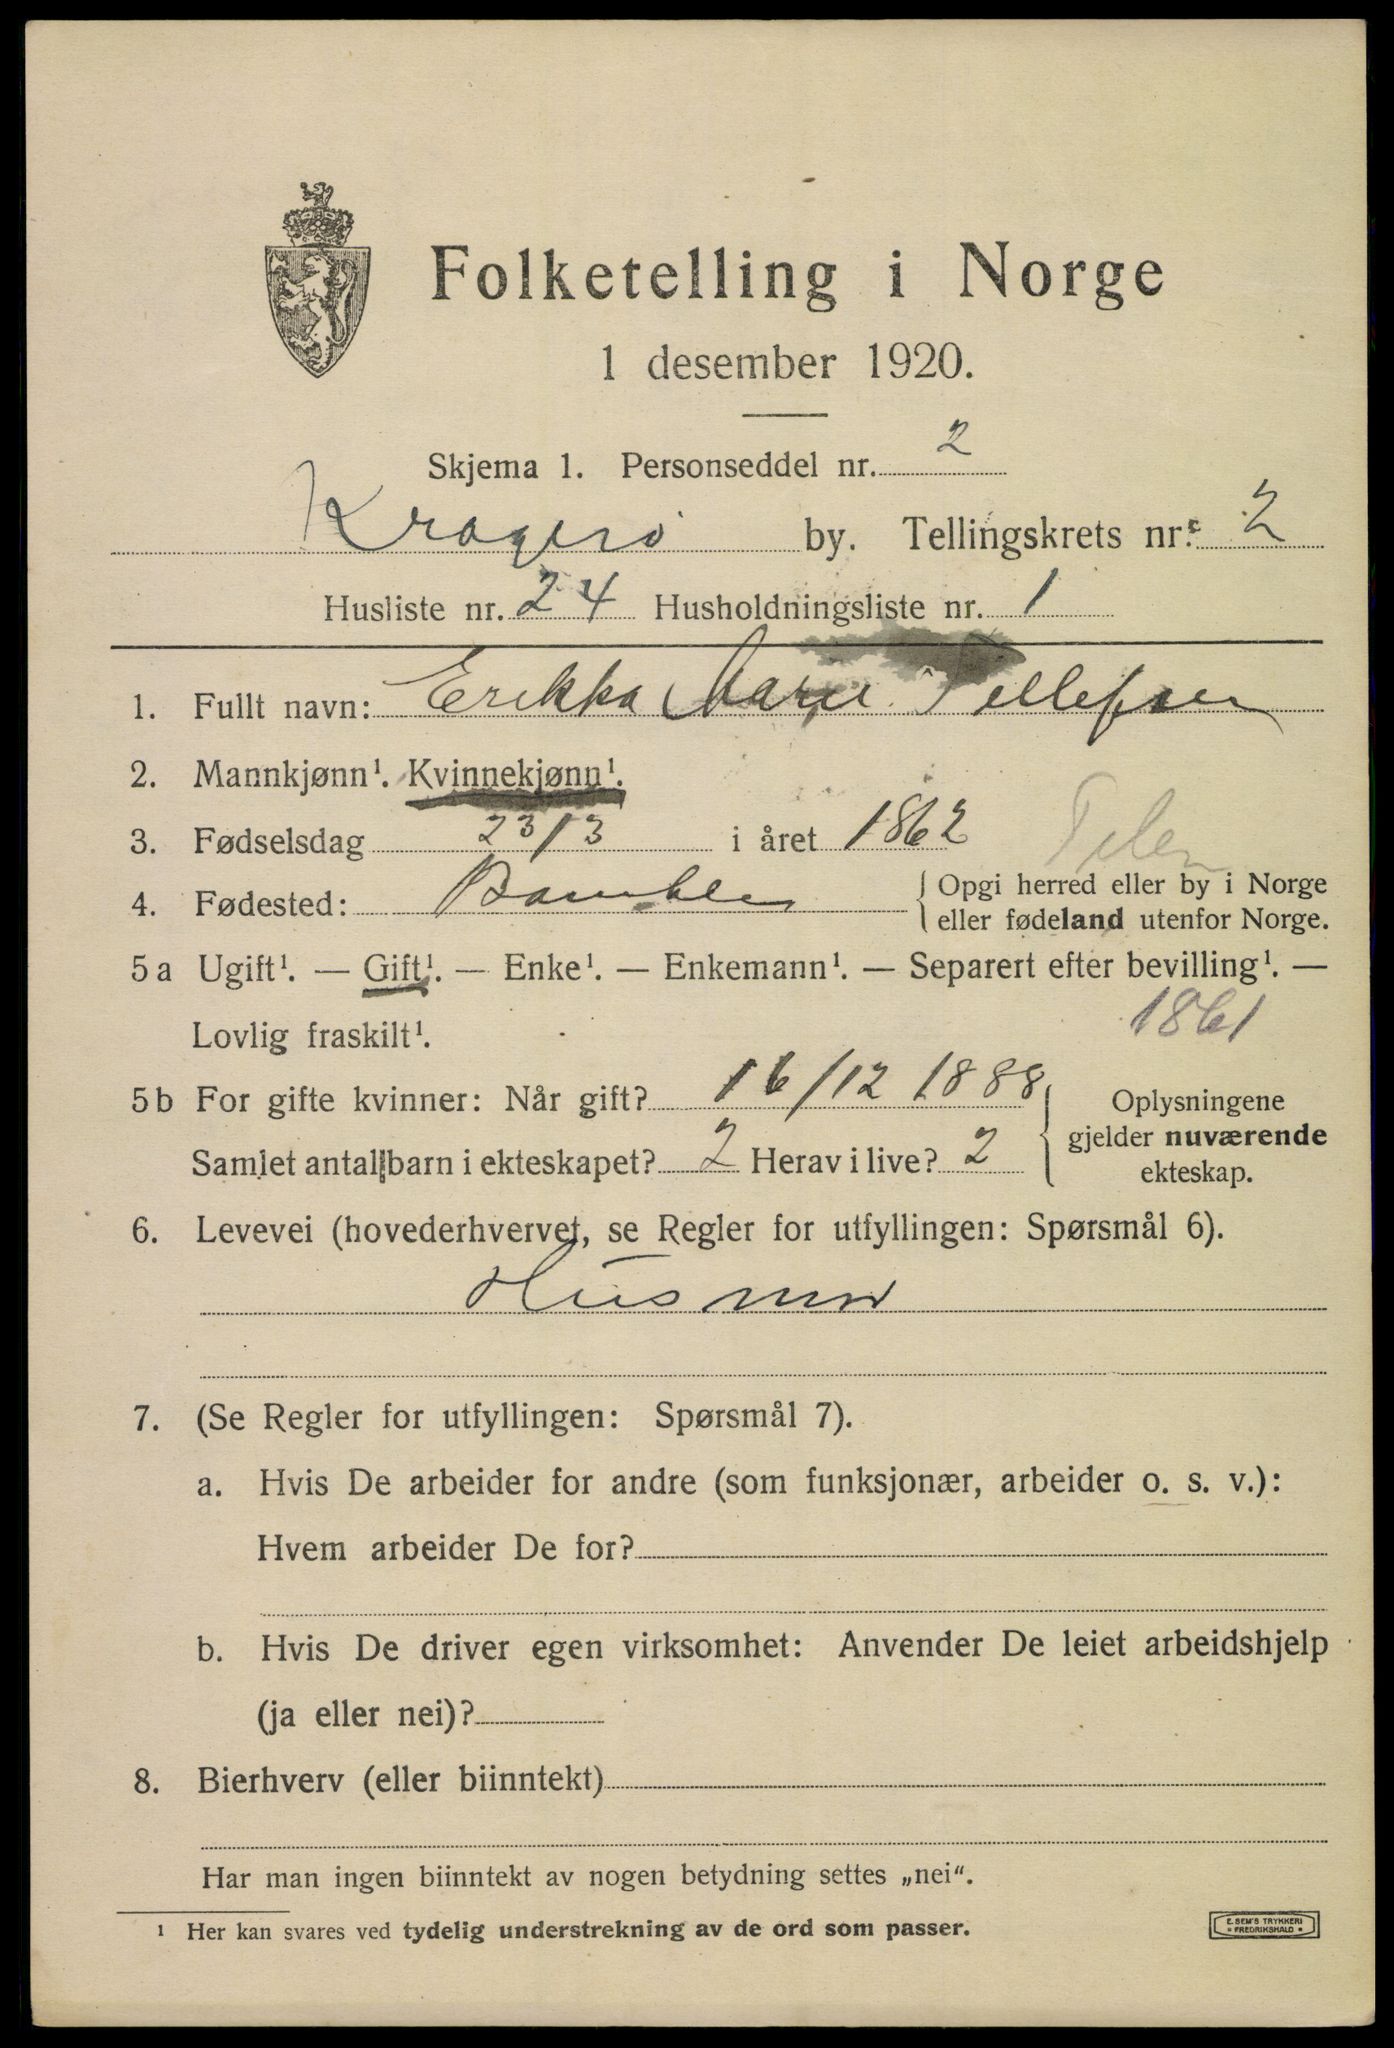 Folketelling i Norge
1 desember 1920.
Skjema 1. Personseddel nr. 2
Kragerø by. Tellingskrets nr. 2
Husliste nr. 24 Husholdningsliste nr. 1
1. Fullt navn: Erikka Marie Tellefsen
2. Mannkjønn¹. Kvinnekjønn¹.
3. Fødselsdag 23/3 i året 1862
Telem
4. Fødested: Bamble {Opgi herred eller by i Norge
eller fødeland utenfor Norge.
5a Ugift¹. — Gift¹. — Enke¹. — Enkemann¹. — Separert efter bevilling¹. —
Lovlig fraskilt¹.
1861
5b For gifte kvinner: Når gift? 16/12 1888
Samlet antal barn i ekteskapet? 2 Herav i live? 2
Oplysningene
gjelder nuværende
ekteskap.
6. Levevei (hovederhvervet, se Regler for utfyllingen: Spørsmål 6).
Husmor
7. (Se Regler for utfyllingen: Spørsmål 7).
a. Hvis De arbeider for andre (som funksjonær, arbeider o. s. v.):
Hvem arbeider De for?
b. Hvis De driver egen virksomhet: Anvender De leiet arbeidshjelp
(ja eller nei)?
8. Bierhverv (eller biinntekt)
Har man ingen biinntekt av nogen betydning settes „nei“.
¹ Her kan svares ved tydelig understrekning av de ord som passer.
E. SEM'S TRYKKERI
FREDRIKSHALD